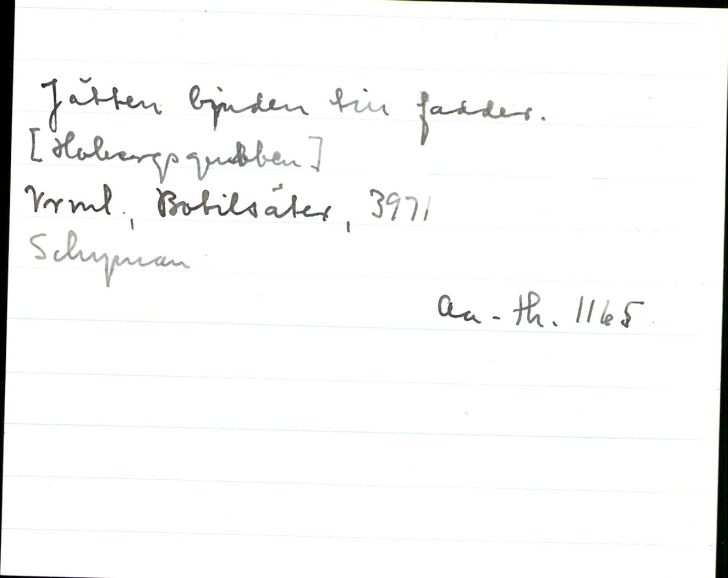 Jätten bjuden till fadder.
[Hobergsgubben]
Vrml., Botilsäter, 3971
Schyman
Aa-th. 1165